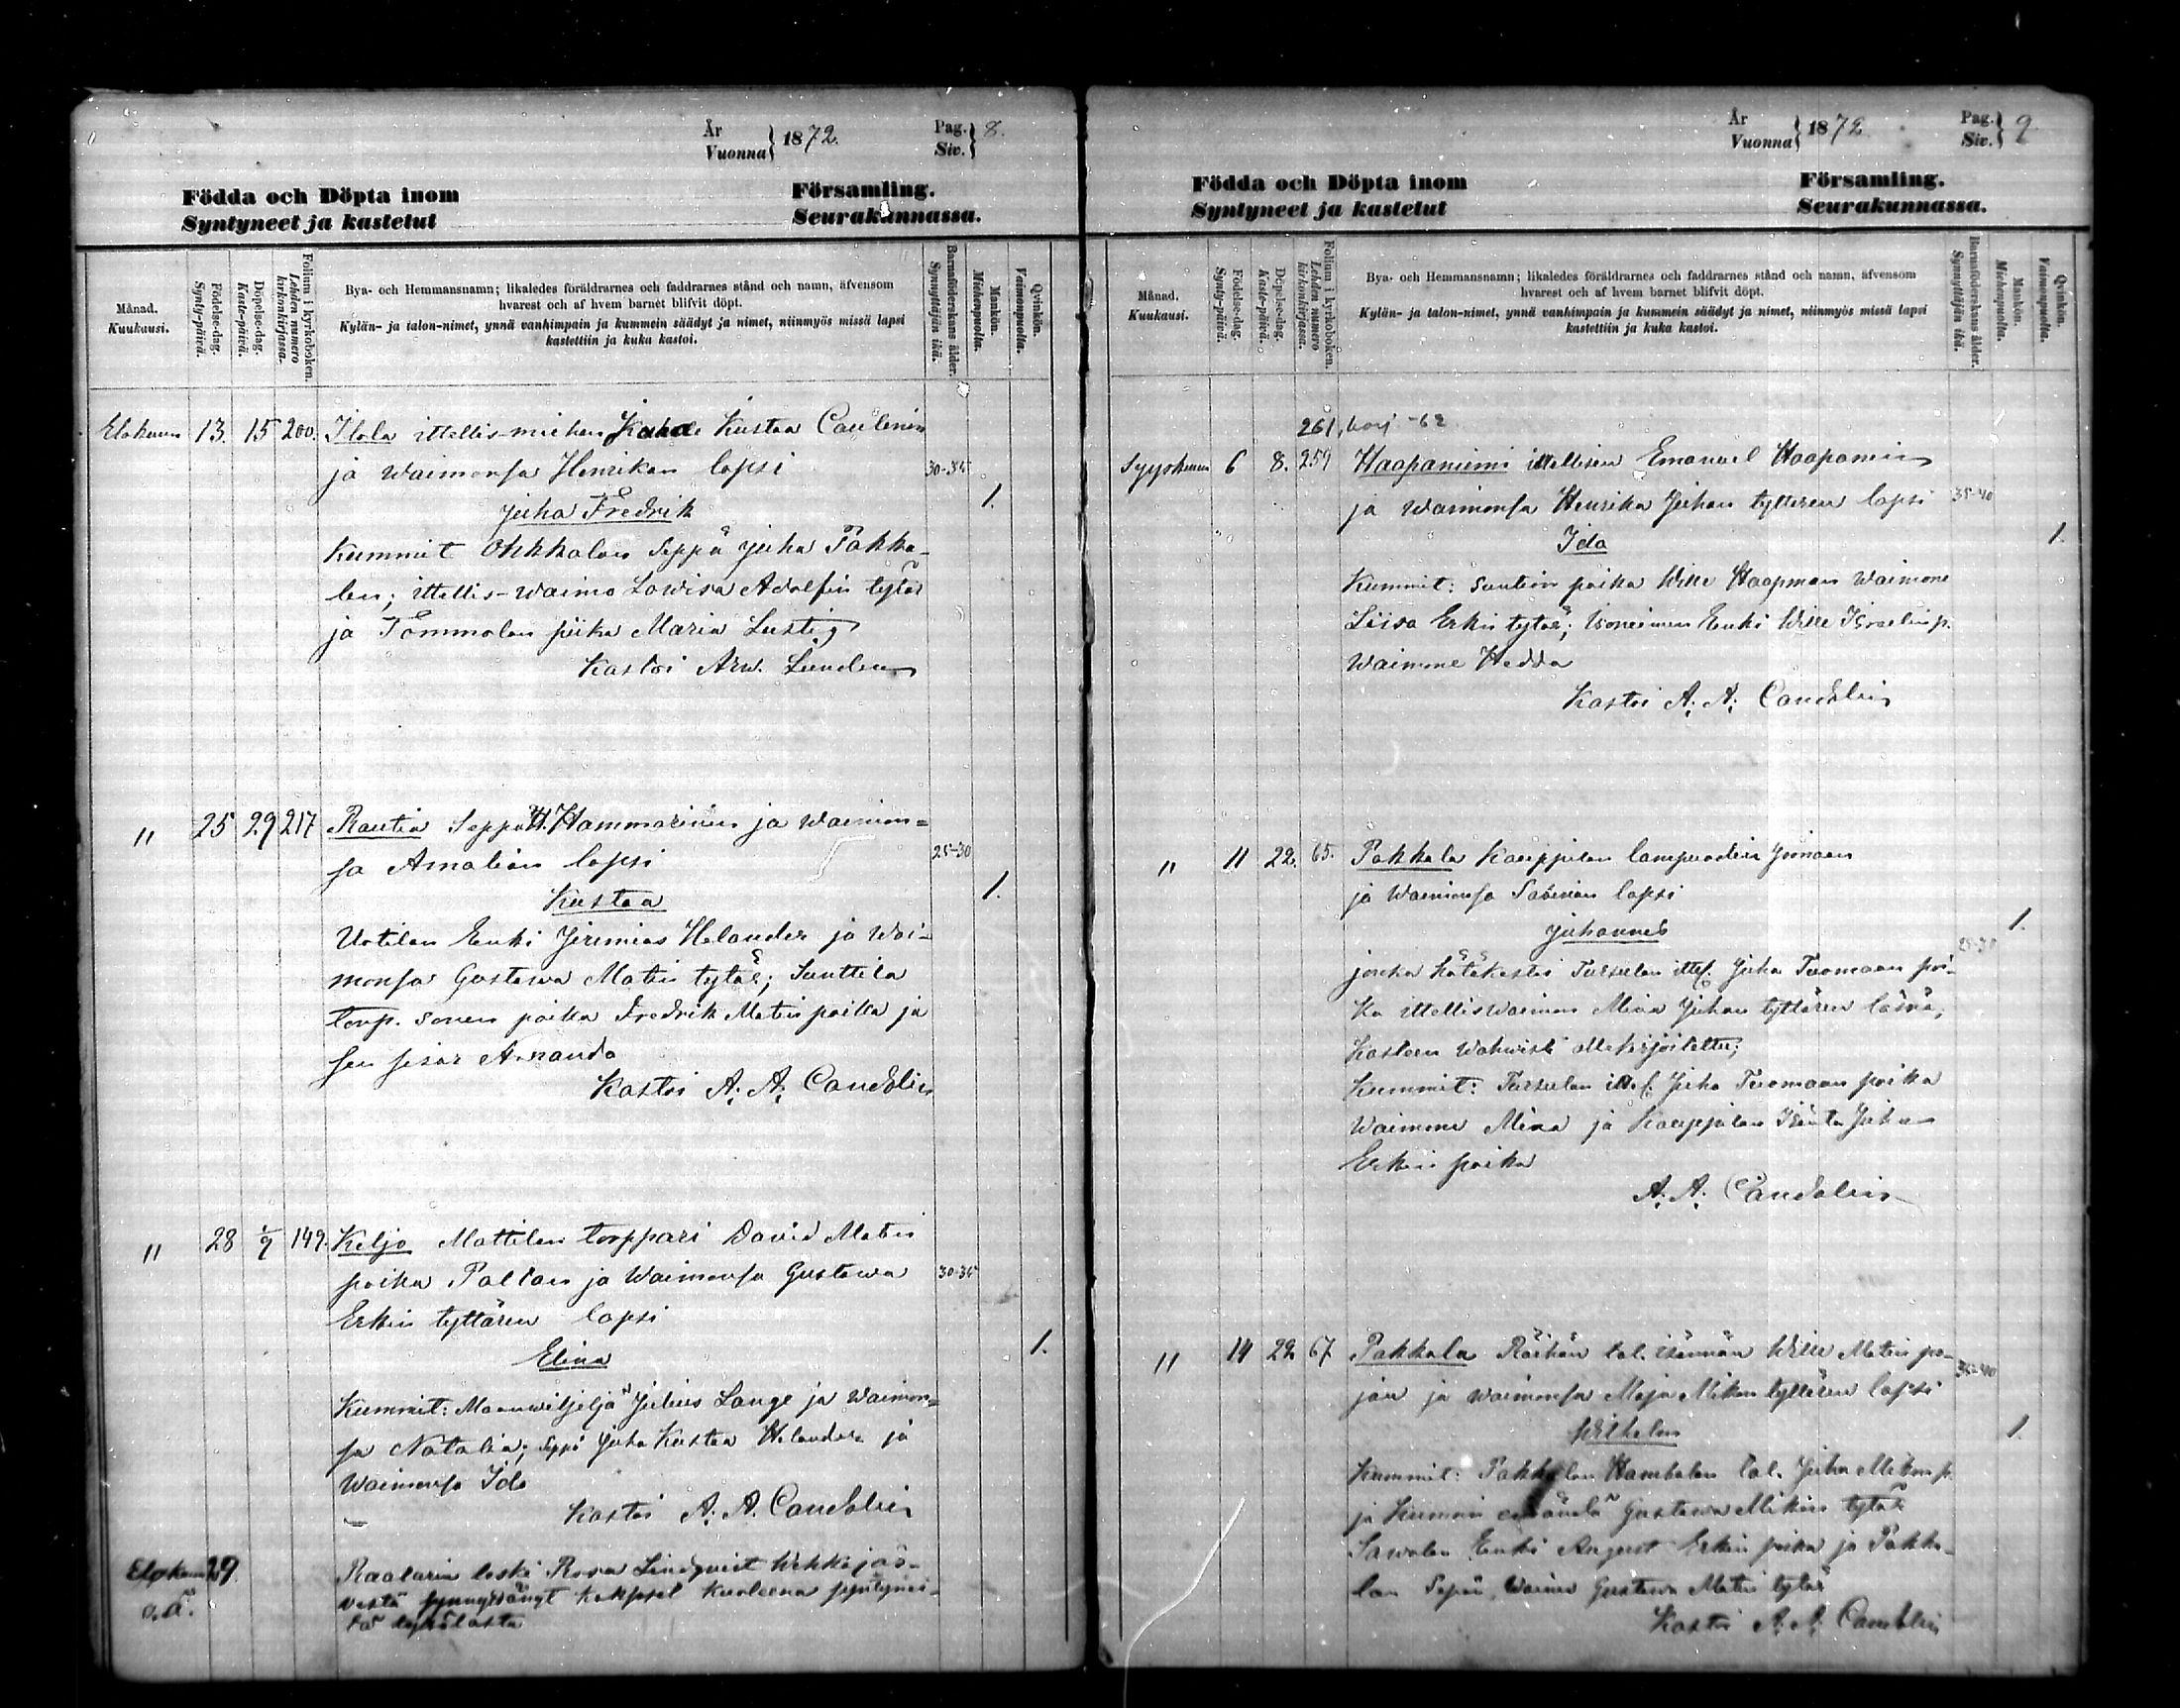 År
Vuonna } 1872.
Pag.
Siv. } 8.
Födda och Döpta inom Församling.
Syntyneet ja kastetut Seurakunnassa.
Månad.
Kuukausi.
Födelse-dag.
Synty-päivä.
Döpelse-dag.
Kaste-päivä.
Folium i kyrkoboken.
Lehden numero kirkonkirjassa.
Bya- och Hemmansnamn; likaledes föräldrarnes och faddrarnes stånd och namn, äfvensom
hvarest och af hvem barnet blifvit döpt.
Kylän- ja talon-nimet, ynnä vanhimpain ja kummein säädyt ja nimet, niinmyös missä lapsi
kastettiin ja kuka kastoi.
Barnaföderskans ålder.
Synnyttäjän ikä.
Mankön.
Miehenpuolta.
Qvinkön.
Vaimonpuolta.
Elokuun 13. 15 200. Ilola ittellis-miehen Kustaa Caulenin
ja waimonsa Henrikan lapsi 30-35
Juha Fredrik 1.
Kummit Ohkkolan Seppä Juha Pakka-
len; ittellis-waimo Lowisa Adolfin tytär
ja Tommolan piika Maria Lustig
Kastoi Arw. Lunden
" 25 29 217 Rautia Seppä H. Hammarinin ja waimon=
sa Amalian lapsi 25-30
Kustaa 1.
Uotilan Enki Jeremias Helander ja wai-
monsa Gustawa Matin tytär; Junttila
torp. sonen poika Fredrik Matin poika ja
sen sisar Amanda
Kastoi A. A. Candolin
" 28 1/9 149. Keljo Mattilan torppari David Matin
poika Paltan ja Waimonsa Gustawa 30-35
Erkin tyttären lapsi
Elina 1.
Kummit: Maanwiljeljä Julius Lange ja Waimon=
sa Natalia; Seppä Juha Kustaa Helander ja
Waimonsa Ida
Kastoi A. A. Candolin
Elokuun 29. leski Rosa Lindqvist
o.ä. kuolleena syntynei-
tä
År
Vuonna } 1872
Pag.
Siv. } 9
Födda och Döpta inom Församling.
Syntyneet ja kastetut Seurakunnassa.
Månad.
Kuukausi.
Födelse-dag.
Synty-päivä.
Döpelse-dag.
Kaste-päivä.
Folium i kyrkoboken.
Lehden numero kirkonkirjassa.
Bya- och Hemmansnamn; likaledes föräldrarnes och faddrarnes stånd och namn, äfvensom
hvarest och af hvem barnet blifvit döpt.
Kylän- ja talon-nimet, ynnä vanhimpain ja kummein säädyt ja nimet, niinmyös missä lapsi
kastettiin ja kuka kastoi.
Barnaföderskans ålder.
Synnyttäjän ikä.
Mankön.
Miehenpuolta.
Qvinkön.
Vaimonpuolta.
261, -62
Syyskuun 6 8. 259 Haapaniemi ittellisen Emanuel Haapanen
ja waimonsa Henrika Juhan tyttären lapsi 35-40
Ida 1.
Kummit: Suntion poika Wille Haapman Waimone
Liisa Erkin tytär; Isoniemen Enki Wille Israelin p.
Waimone Hedda
Kastoi A. A. Candolin
" 11 22. 65. Pakkala Kauppilan lampuodin Joonaan
ja Waimonsa Sabinan lapsi
Juhannes 1.
jonka hätäkastoi Tursulan ittel. Juha Tuomaan poi- 25-30
ka ittelliswaimon Mina Juhan tyttären läsnä,
Kasteen wahwisti allekirjoitettu;
Kummit: Tursulan ittel. Juha Tuomaan poika
Waimone Mina ja Kauppilan Isäntä Juha
Erkin poika
A. A. Candolin
" 14 22. 67 Pakkala Räihän tal. isännän Wille Matin po-
jan ja waimonsa Maja Mikon tyttären lapsi 35-40
Wilhelm 1.
Kummit: Pakkalan Hambolan tal. Juha Mikon p.
ja Kummin emäntä Gustawa Mikin tytär
Sawolan Enki August Erkin poika ja Pakka-
lan Sepän Waimo Gustawa Matin tytär
Kastoi A. A. Candolin